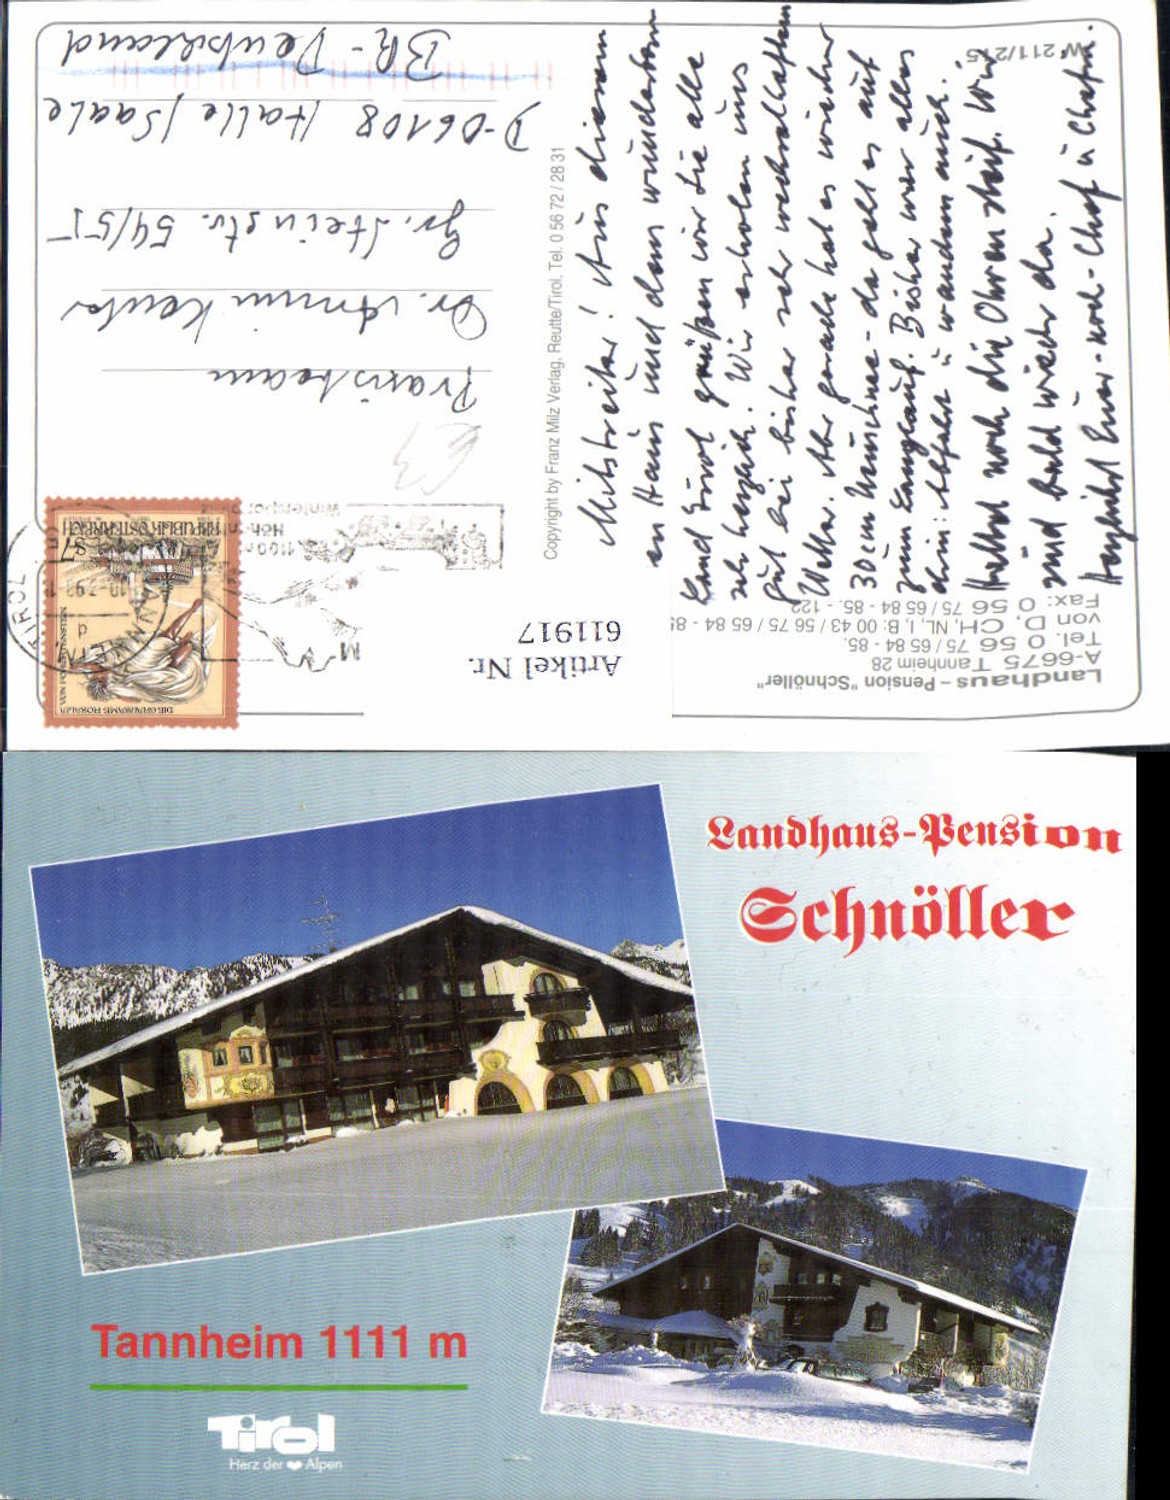 Landhaus - Pension "Schnöller"
A-6675 Tannheim 28
Tel. 0 56 75 / 65 84 - 85.
von D, CH, NL, I, B: 00 43 / 56 75 / 65 84 - 85
Fax: 0 56 75 / 65 84 - 85. - 122
W 211/215
Artikel Nr.
611917
Copyright by Franz Milz Verlag, Reutte/Tirol, Tel. 0 56 72 / 28 31
REPUBLIK ÖSTERREICH
S7
TIROL
Wintersport
1100 m
Praxisteam
Dr. Armin
Gr. Steinstr. 54/55
D-06108 Halle/Saale
BR-Deutschland
Mitstreiter! Aus diesem
Land Tirol grüßen wir Sie alle
sehr herzlich. Wir erholen uns
gut bei bisher sehr wechselhaftem
Wetter. Aber gerade hat es wieder
30 cm Neuschnee - da geht es auf
zum Langlauf. Bisher war alles
drin: Abfahrt u wandern auch.
noch die Ohren steif. Wir
sind bald wieder da.
Landhaus-Pension
Schnöller
Tannheim 1111 m
Tirol
Herz der Alpen